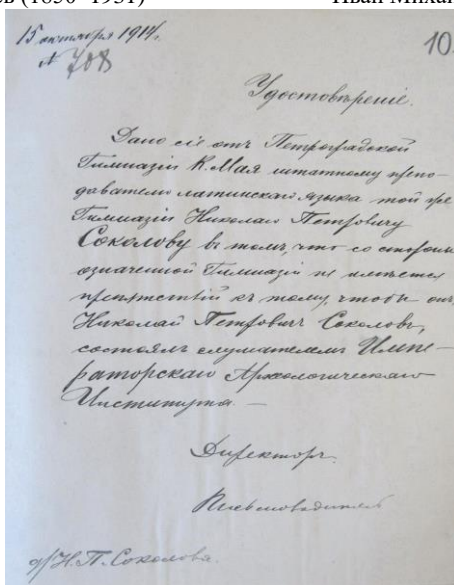 ев (1850–1931)
Иван Михай
15 октября 1914 г.
№ 708
10
Удостовѣреніе.
Дано сіе отъ Петроградской
Гимназіи К. Мая штатному препо-
давателю латинскаго языка той же
Гимназіи Николаю Петровичу
Соколову въ томъ, что со стороны
означенной Гимназіи не имѣется
препятствій къ тому, чтобы онъ,
Николай Петровичъ Соколовъ,
состоялъ слушателемъ Импе-
раторскаго Археологическаго
Института. —
Директоръ
Письмоводитель
д/ Н. П. Соколова.